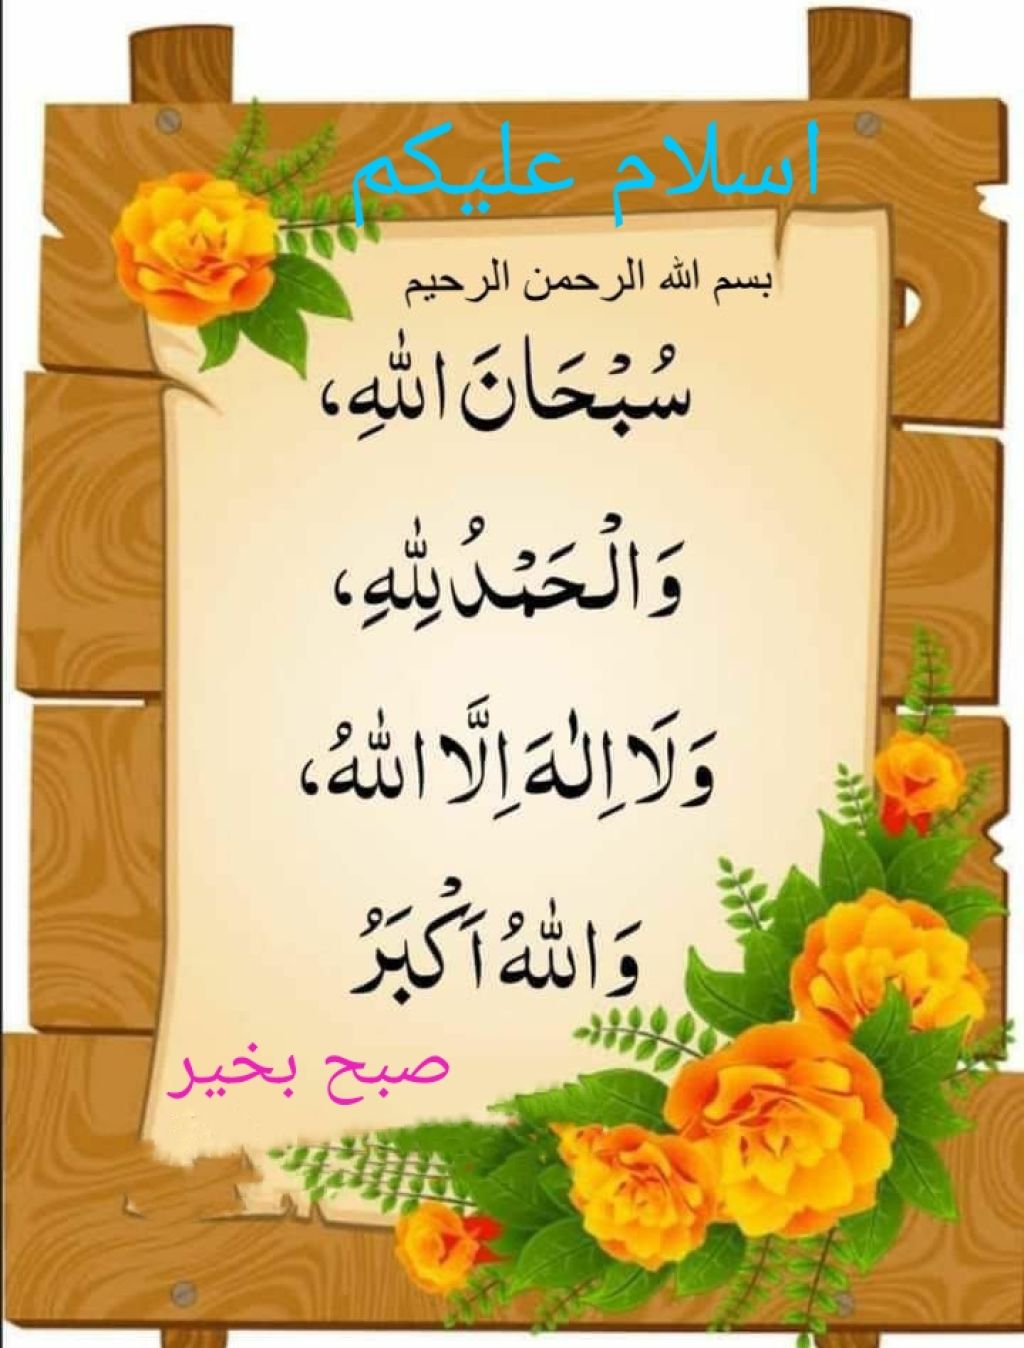 اسلام علیکم
بسم الله الرحمن الرحيم
سُبْحَانَ اللّٰهِ،
وَالْحَمْدُ لِلّٰهِ،
وَلَا اِلٰهَ اِلَّا اللّٰهُ،
وَاللّٰهُ اَكْبَرُ
صبح بخیر